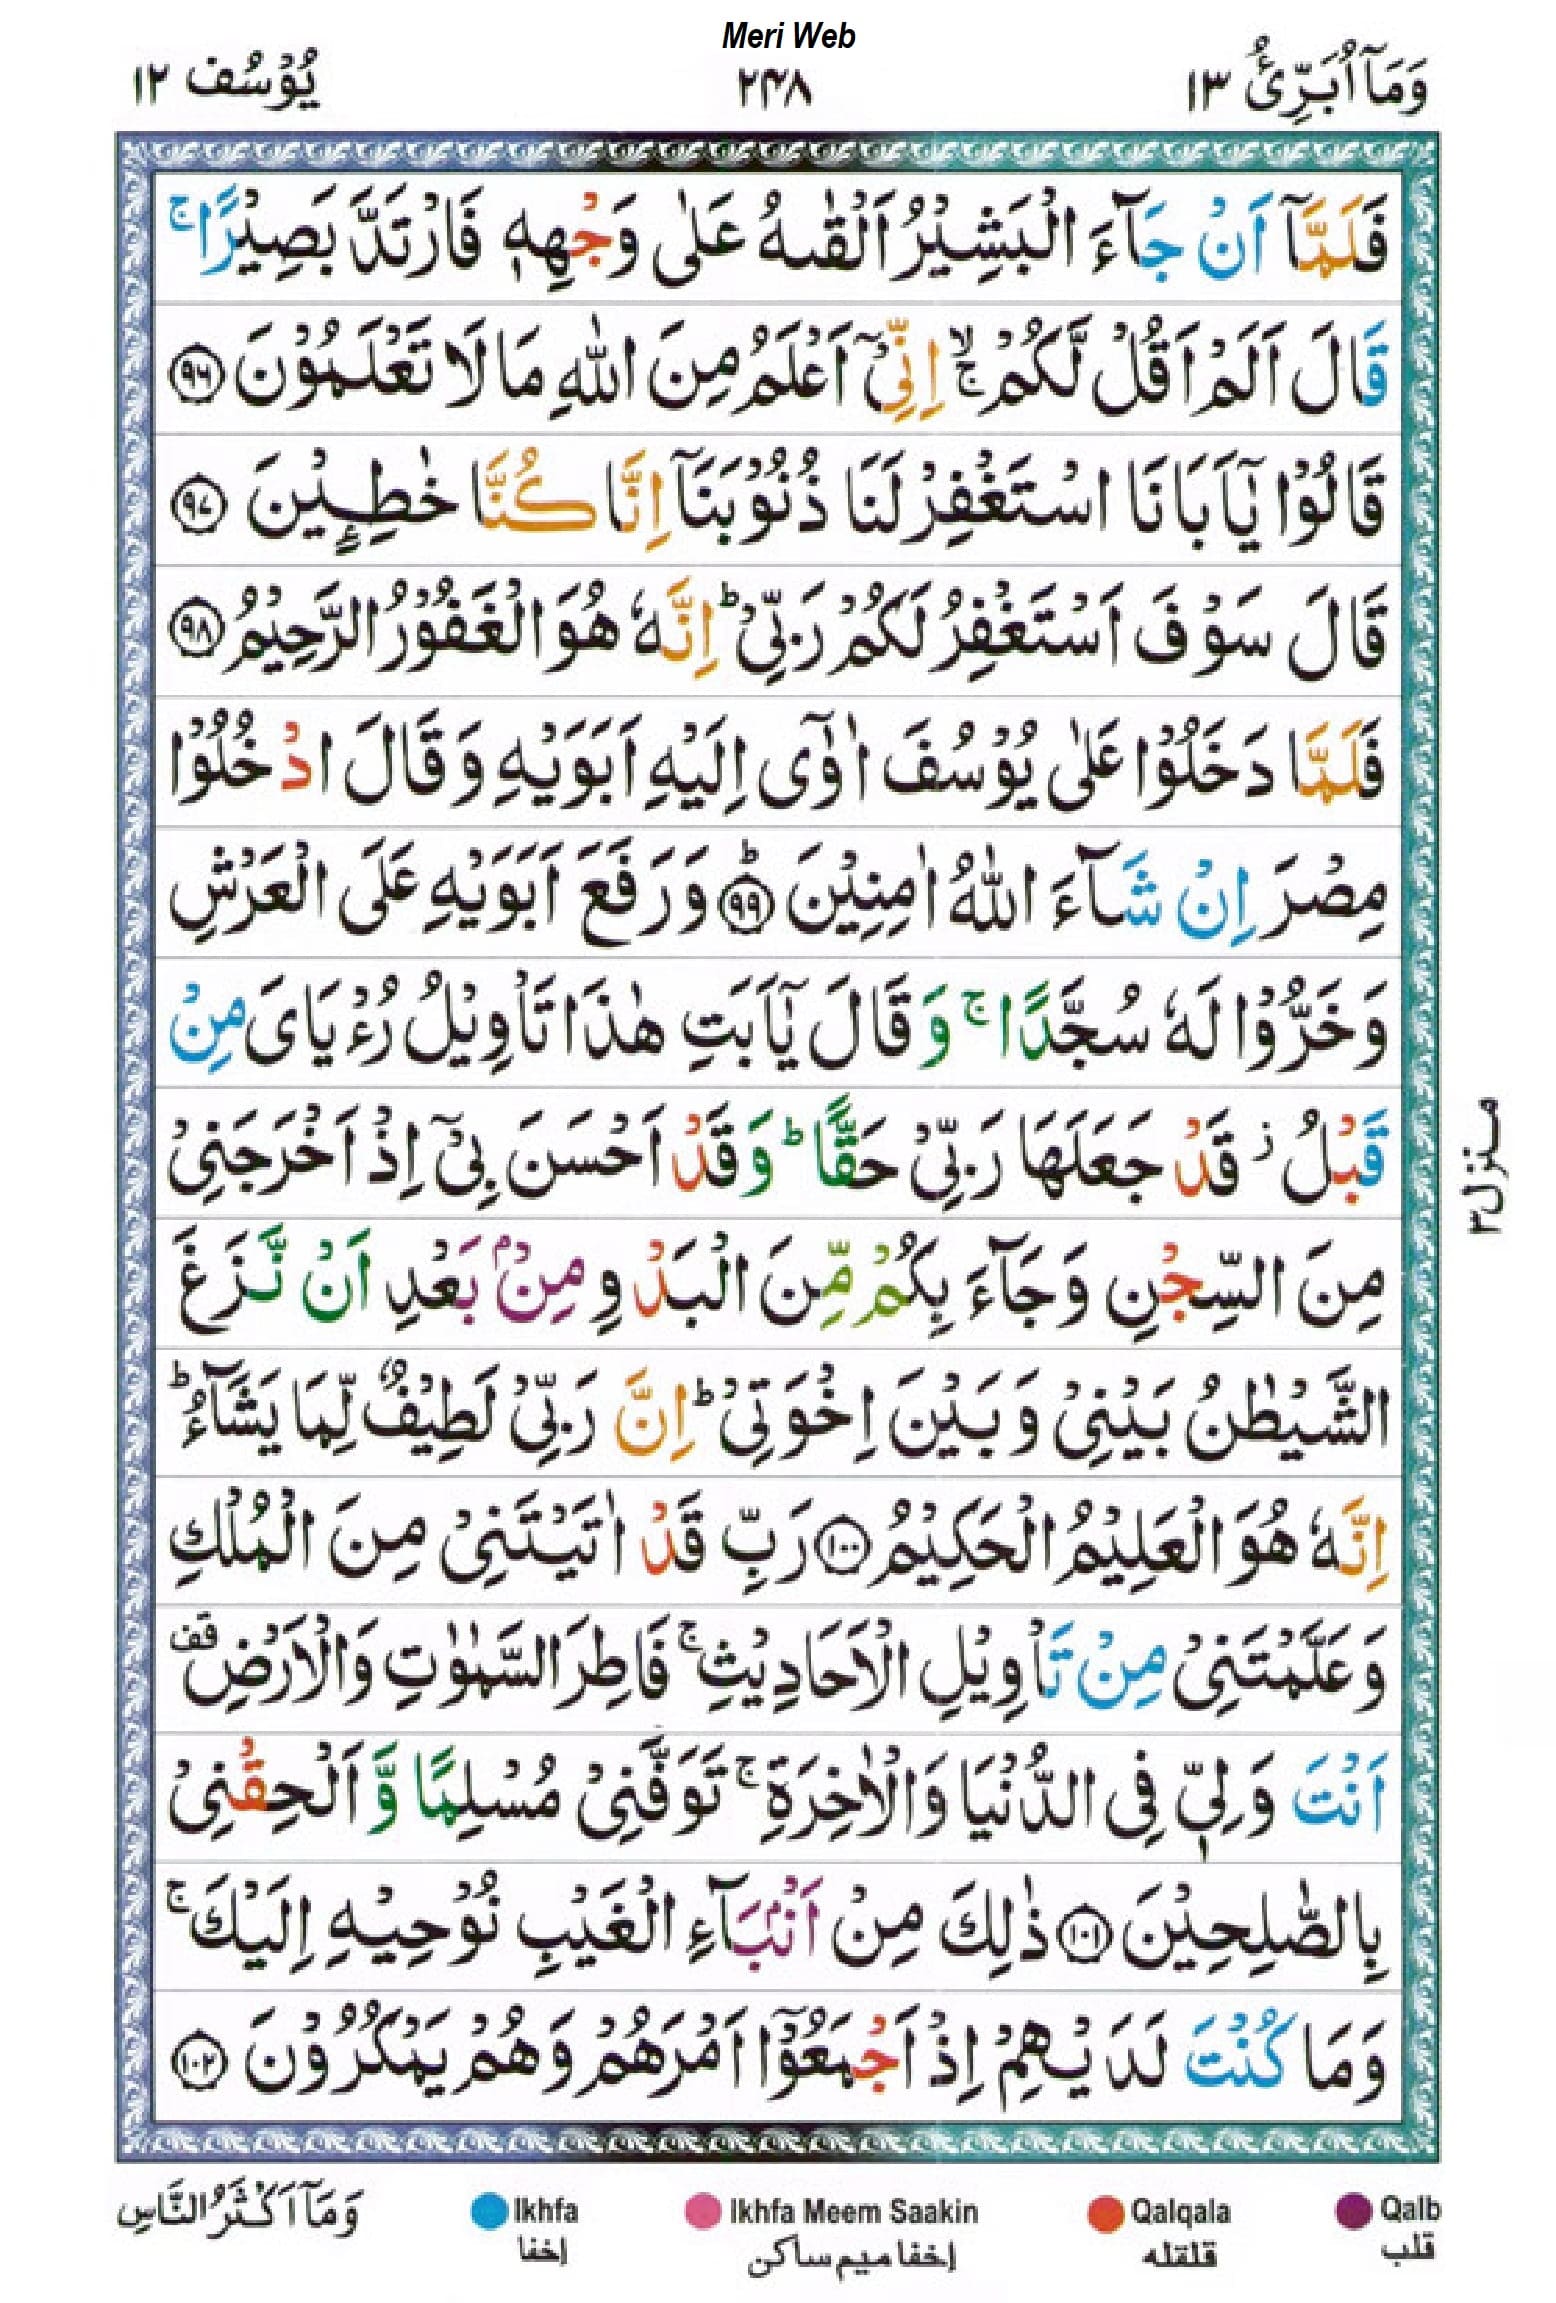 Meri Web
وَمَاۤ اُبَرِّئُ ١٣
٢٤٨
يُوْسُف ١٢
فَلَمَّاۤ اَنْ جَآءَ الْبَشِيْرُ اَلْقٰىهُ عَلٰى وَجْهِهٖ فَارْتَدَّ بَصِيْرًا ۚ
قَالَ اَلَمْ اَقُلْ لَّكُمْ ۙۚ اِنِّىْۤ اَعْلَمُ مِنَ اللّٰهِ مَا لَا تَعْلَمُوْنَ ﴿٩٦﴾
قَالُوْا يٰۤاَبَانَا اسْتَغْفِرْ لَنَا ذُنُوْبَنَاۤ اِنَّا كُنَّا خٰطِـِٕيْنَ ﴿٩٧﴾
قَالَ سَوْفَ اَسْتَغْفِرُ لَكُمْ رَبِّىْ ؕ اِنَّهٗ هُوَ الْغَفُوْرُ الرَّحِيْمُ ﴿٩٨﴾
فَلَمَّا دَخَلُوْا عَلٰى يُوْسُفَ اٰوٰٓى اِلَيْهِ اَبَوَيْهِ وَ قَالَ ادْخُلُوْا
مِصْرَ اِنْ شَآءَ اللّٰهُ اٰمِنِيْنَ ؕ﴿٩٩﴾ وَ رَفَعَ اَبَوَيْهِ عَلَى الْعَرْشِ
وَ خَرُّوْا لَهٗ سُجَّدًا ۚ وَ قَالَ يٰۤاَبَتِ هٰذَا تَاْوِيْلُ رُءْيَاىَ مِنْ
قَبْلُ ؗ قَدْ جَعَلَهَا رَبِّىْ حَقًّا ؕ وَ قَدْ اَحْسَنَ بِىْۤ اِذْ اَخْرَجَنِىْ
مِنَ السِّجْنِ وَ جَآءَ بِكُمْ مِّنَ الْبَدْوِ مِنْۢ بَعْدِ اَنْ نَّزَغَ
الشَّيْطٰنُ بَيْنِىْ وَ بَيْنَ اِخْوَتِىْ ؕ اِنَّ رَبِّىْ لَطِيْفٌ لِّمَا يَشَآءُ ؕ
اِنَّهٗ هُوَ الْعَلِيْمُ الْحَكِيْمُ ﴿١٠٠﴾ رَبِّ قَدْ اٰتَيْتَنِىْ مِنَ الْمُلْكِ
وَ عَلَّمْتَنِىْ مِنْ تَاْوِيْلِ الْاَحَادِيْثِ ۚ فَاطِرَ السَّمٰوٰتِ وَ الْاَرْضِ قف
اَنْتَ وَلِىّٖ فِى الدُّنْيَا وَ الْاٰخِرَةِ ۚ تَوَفَّنِىْ مُسْلِمًا وَّ اَلْحِقْنِىْ
بِالصّٰلِحِيْنَ ﴿١٠١﴾ ذٰلِكَ مِنْ اَنْۢبَآءِ الْغَيْبِ نُوْحِيْهِ اِلَيْكَ ۚ
وَ مَا كُنْتَ لَدَيْهِمْ اِذْ اَجْمَعُوْۤا اَمْرَهُمْ وَ هُمْ يَمْكُرُوْنَ ﴿١٠٢﴾
منزل ٣
وَمَاۤ اَكْثَرُ النَّاسِ
Ikhfa
Ikhfa Meem Saakin
Qalqala
Qalb
إخفا
إخفا ميم ساكن
قلقله
قلب